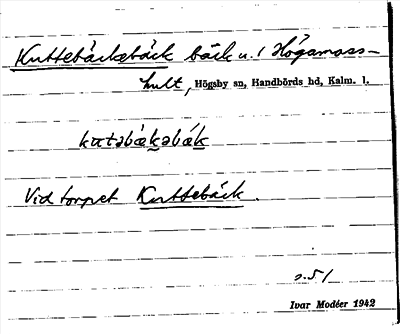 Kuttebäckebäck bäck u. / Högamåss-
hult, Högsby sn, Handbörds hd, Kalm. l.
kutəbækəbæk
Vid torpet Kuttebäck.
s. 51
Ivar Modéer 1942